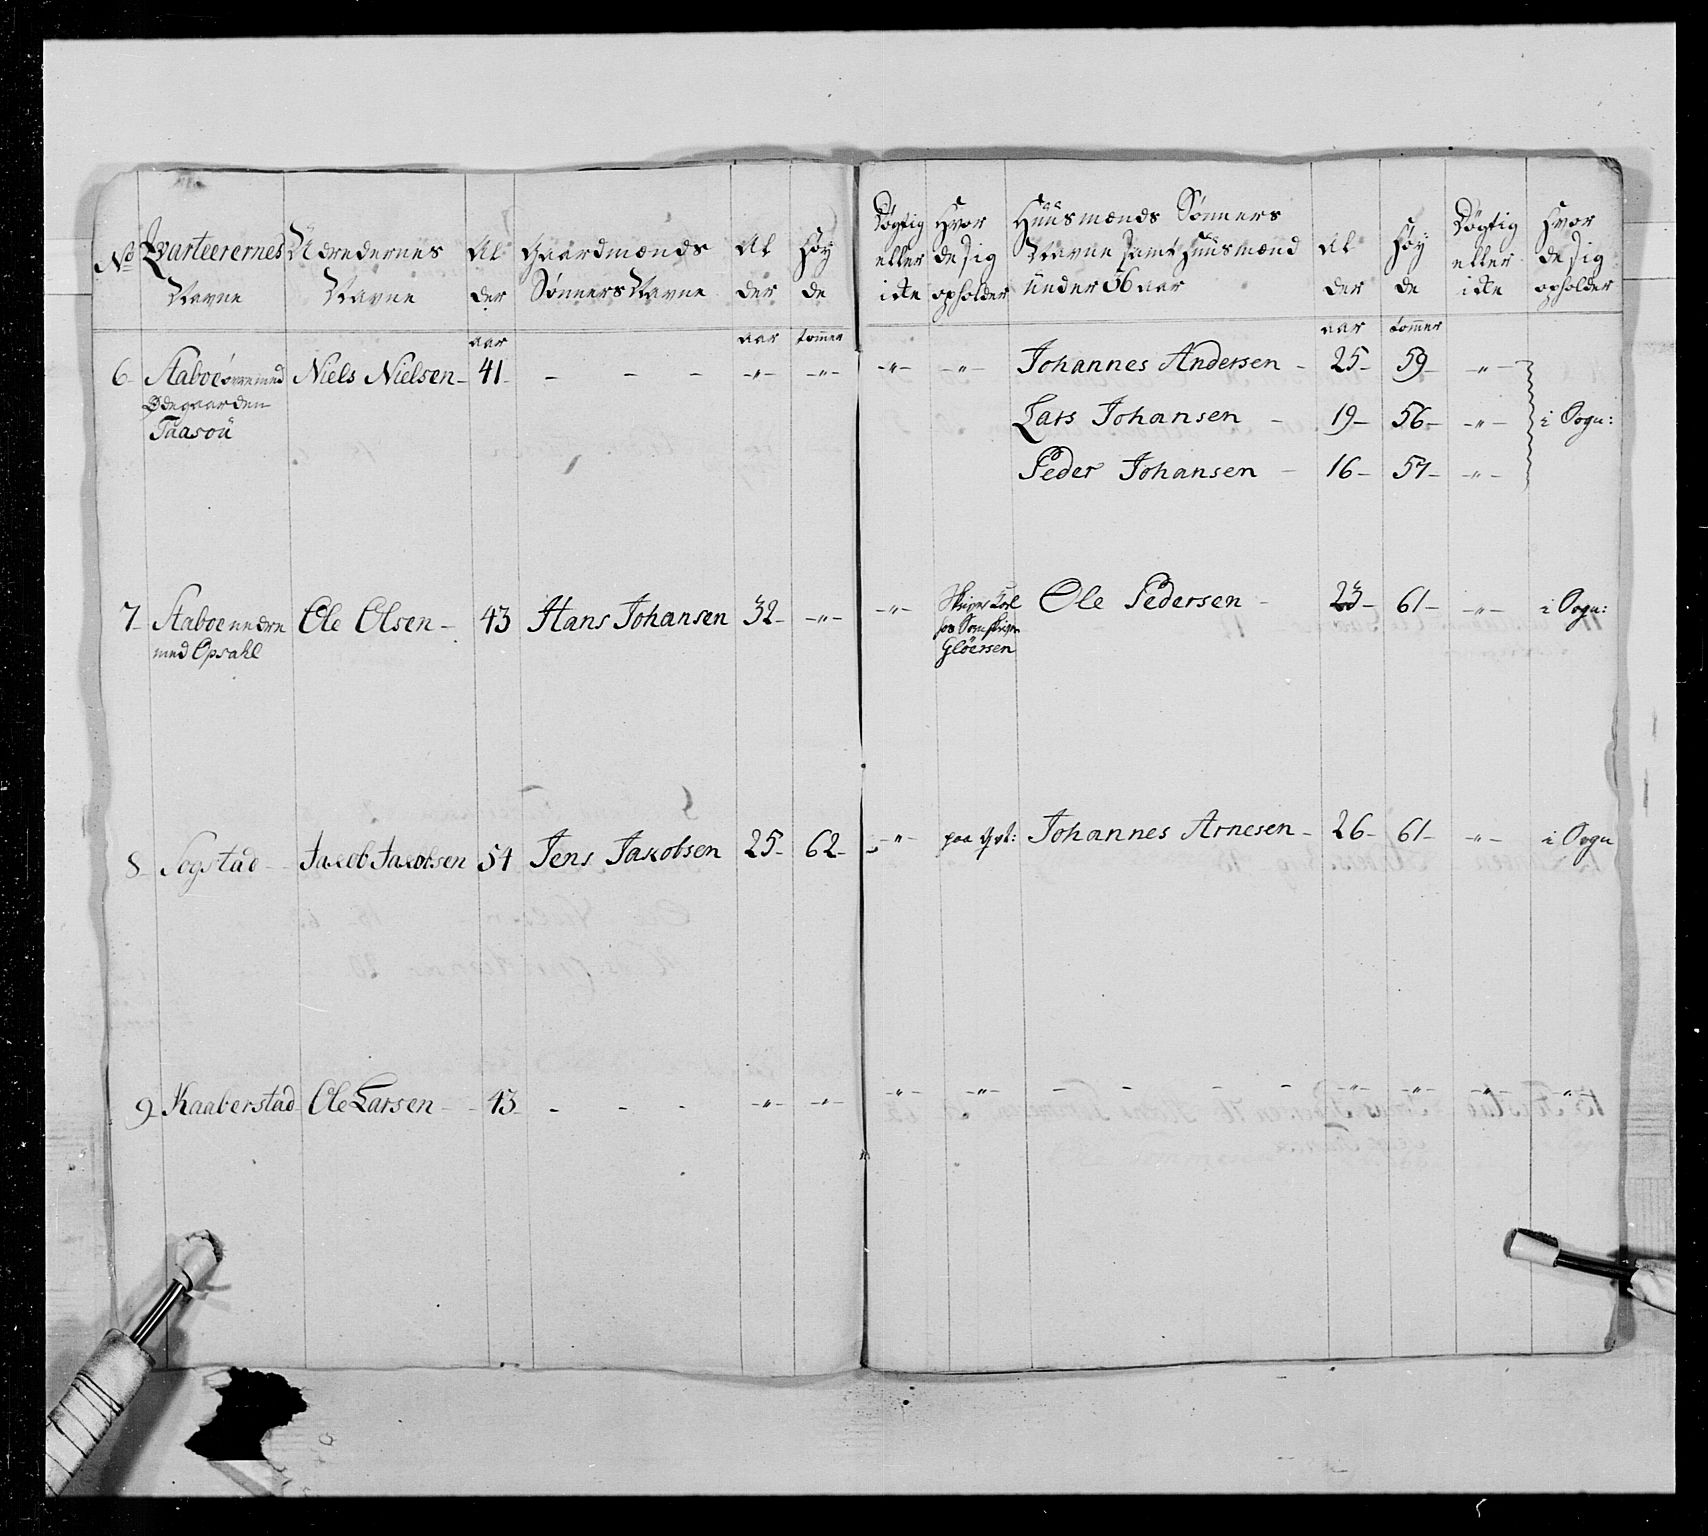 No Qvarteerernes Navne
Udredernes Navne
Al der
Gaardmænds Sønners Navne
Al der
Høy de
Døgtig eller icke
Hvor de sig opholder
Huusmænds Sønners Navne samt Huusmænd under 56 aar
Al der
Høy de
Døgtig eller icke
Hvor de sig opholder
aar aar tommer aar tommer
6 Staboe øvre med Niels Nielsen - 41 - - - -"- -"- -"- -"- Johannes Andersen - 25 - 59 - -"-
Ødegaarden Lars Johansen - 19 - 56 - -"- i Sogn:
Taasou Peder Johansen - 16 - 57 - -"-
7 Staboe nedre Ole Olsen - 43 Hans Johansen 32 - -"- -"- Ole Pedersen - 23 - 61 - -"- i Sogn:
med Opsahl
Gløersen
8 Sogstad - Jacob Jacobsen 54 Jens Jacobsen 25 - 62 - -"- paa Johannes Arnesen - 26 - 61 - -"- i Sogn
9 Kaaberstad Ole Larsen - 43 - - - -"- -"- -"- -"- - - - - -"- -"- -"- "